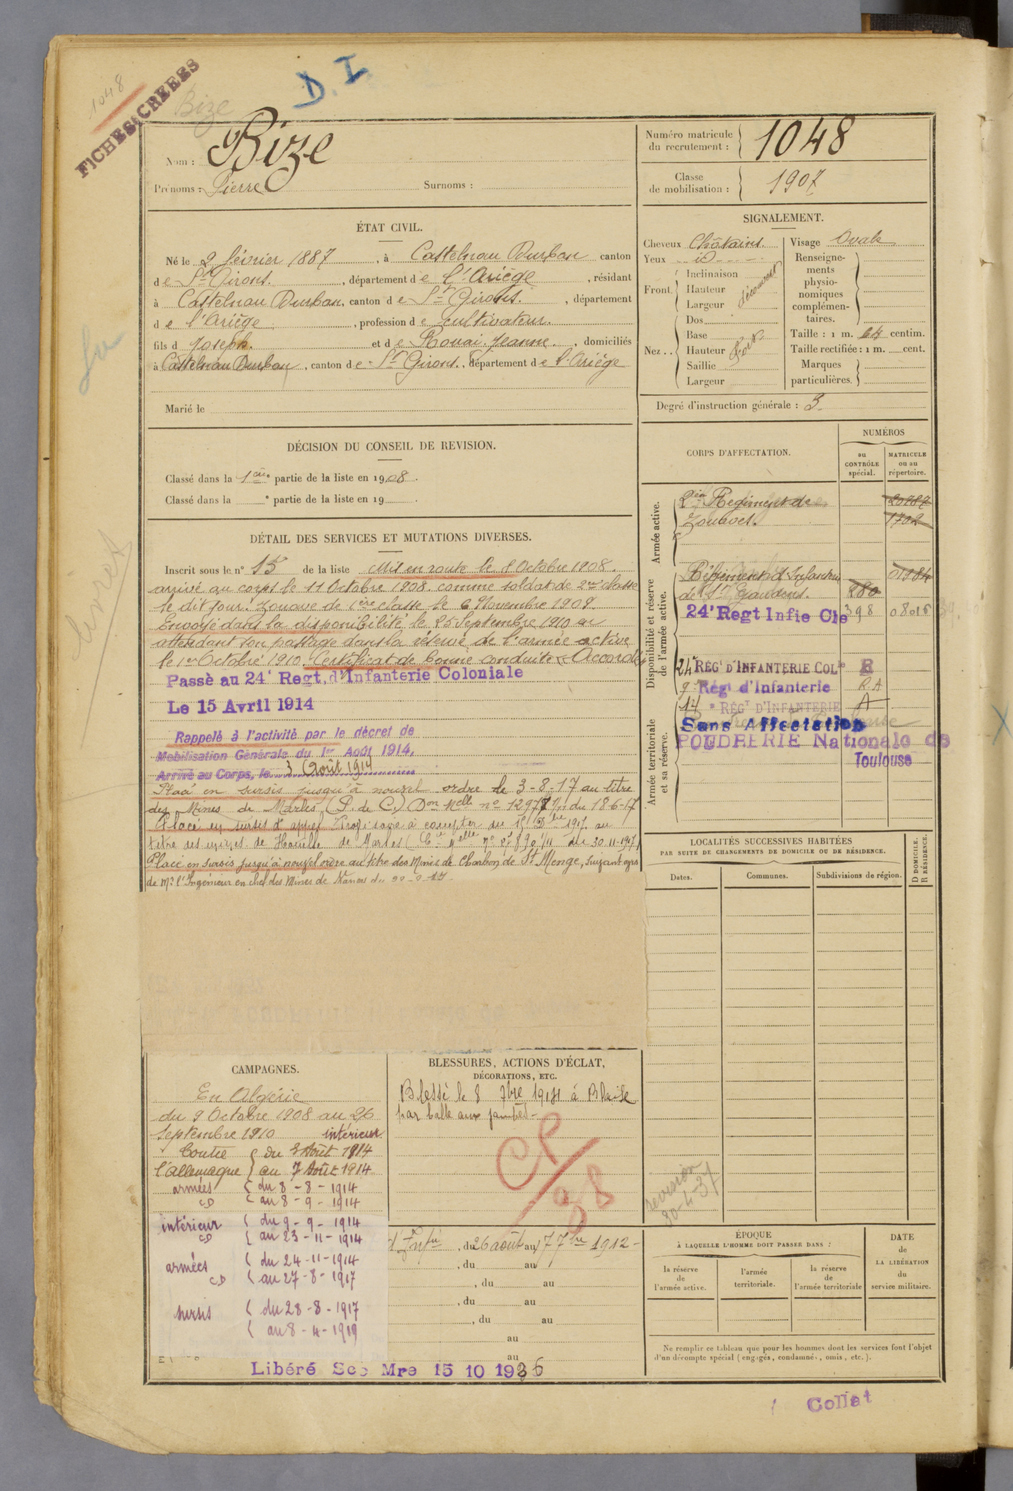 1048
FICHES CREEES
Bize
D. I.
Nom : Bize
Prénoms : Pierre Surnoms :
Numéro matricule du recrutement : 1048
Classe de mobilisation : 1907
ÉTAT CIVIL.
Né le 2 février 1887, à Castelnau Durban canton
de St Girons, département de l'Ariège, résidant
à Castelnau Durban, canton de St Girons, département
de l'Ariège, profession de cultivateur
fils de Joseph et de Rouai Jeanne, domiciliés
à Castelnau Durban, canton de St Girons, département de l'Ariège
Marié le
SIGNALEMENT.
Cheveux Châtains
Yeux id
Front. Inclinaison
Hauteur
Largeur
Nez . . Dos
Base
Hauteur
Saillie
Largeur
Visage Ovale
Renseignements physionomiques complémentaires.
Taille : 1 m. 64 centim.
Taille rectifiée : 1 m. cent.
Marques particulières.
Degré d'instruction générale : 3
DÉCISION DU CONSEIL DE REVISION.
Classé dans la 1ère partie de la liste en 1908.
Classé dans la e partie de la liste en 19
DÉTAIL DES SERVICES ET MUTATIONS DIVERSES.
Inscrit sous le n° 15 de la liste Mis en route le 8 Octobre 1908.
arrivé au corps le 11 Octobre 1908. comme soldat de 2me classe
le dit jour. Zouave de 1ère classe le 6 Novembre 1909.
Envoyé dans la disponibilité le 25 Septembre 1910 en
attendant son passage dans la réserve de l'armée active
le 1er Octobre 1910. Certificat de bonne conduite Accordé
Passé au 24e Regt, d'Infanterie Coloniale
Le 15 Avril 1914
Rappelé à l'activité par le décret de
Mobilisation Générale du 1er Août 1914.
Arrivé au Corps, le 3 Août 1914
Placé en sursis jusqu'à nouvel ordre le 3-8-17 au titre
des Mines de Marles (P. de C.) Don Melle n° du 18-6-17
Placé en sursis d'appel à compter du 1917 au
titre des mines de Houille de Marles du 30.11.1917
Placé en sursis jusqu'à nouvel ordre au titre des Mines de Charbon de St Menge, suivant
de Mr l'Ingénieur en chef des Mines de Nancy du
CORPS D'AFFECTATION.
NUMÉROS
au CONTRÔLE spécial.
MATRICULE ou au répertoire.
Armée active.
2e Régiment de
Zouaves.
1702
Disponibilité et réserve de l'armée active.
Régiment d'Infanterie
de St Gaudens. 280
24e Regt Infie Cle 398 08015
24e RÉGt D'INFANTERIE COLle R
9e Régt d'Infanterie R.A
14e RÉGt D'INFANTERIE A
Armée territoriale et sa réserve.
Sans Affectation
POUDRERIE Nationale de
Toulouse
LOCALITÉS SUCCESSIVES HABITÉES
PAR SUITE DE CHANGEMENTS DE DOMICILE OU DE RÉSIDENCE.
Dates. Communes. Subdivisions de région. D DOMICILE. R RÉSIDENCE.
CAMPAGNES.
En Algérie
du 9 Octobre 1908 au 26
Septembre 1910
intérieur
Contre l'Allemagne du 3 Août 1914
au 7 Août 1914
armées CD du 8-8-1914
au 8-9-1914
intérieur CD du 9-9-1914
au 23-11-1914
armées CD du 24-11-1914
au 27-8-1917
sursis du 28-8-1917
au 8-4-1919
BLESSURES, ACTIONS D'ÉCLAT,
DÉCORATIONS, ETC.
Blessé le 8 7bre 1914 à
par balle aux jambes
CP/38
revision
30-4-37
, du 26 août au 17 7bre 1912
, du au
, du au
, du au
, du au
au
au
Libéré Sce Mre 15 10 1936
ÉPOQUE
À LAQUELLE L'HOMME DOIT PASSER DANS :
la réserve de l'armée active.
l'armée territoriale.
la réserve de l'armée territoriale
DATE de LA LIBÉRATION du service militaire.
Ne remplir ce tableau que pour les hommes dont les services font l'objet
d'un décompte spécial (engagés, condamnés, omis, etc.).
Collat